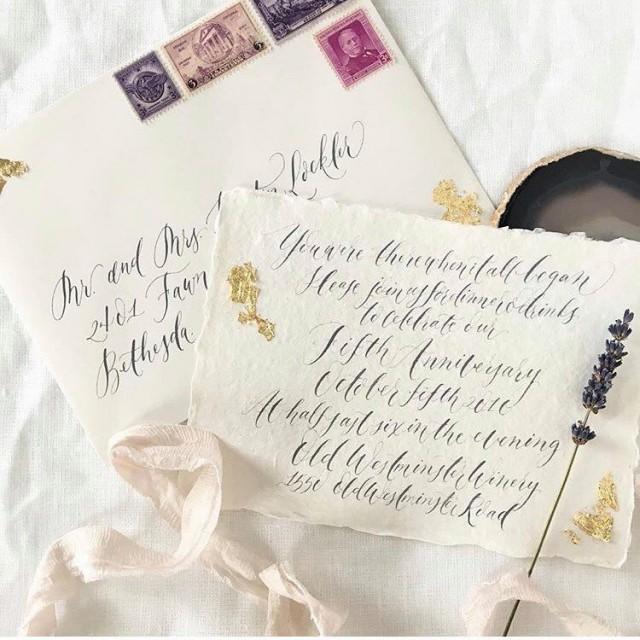 Mr. and Mrs. Lockler
2401 Fawn
Bethesda
You were there when it all began
Please join us for dinner & drinks
to celebrate our
Fifth Anniversary
October fifth 2016
At half past six in the evening
Old Westminster Winery
1550 Old Westminster Road